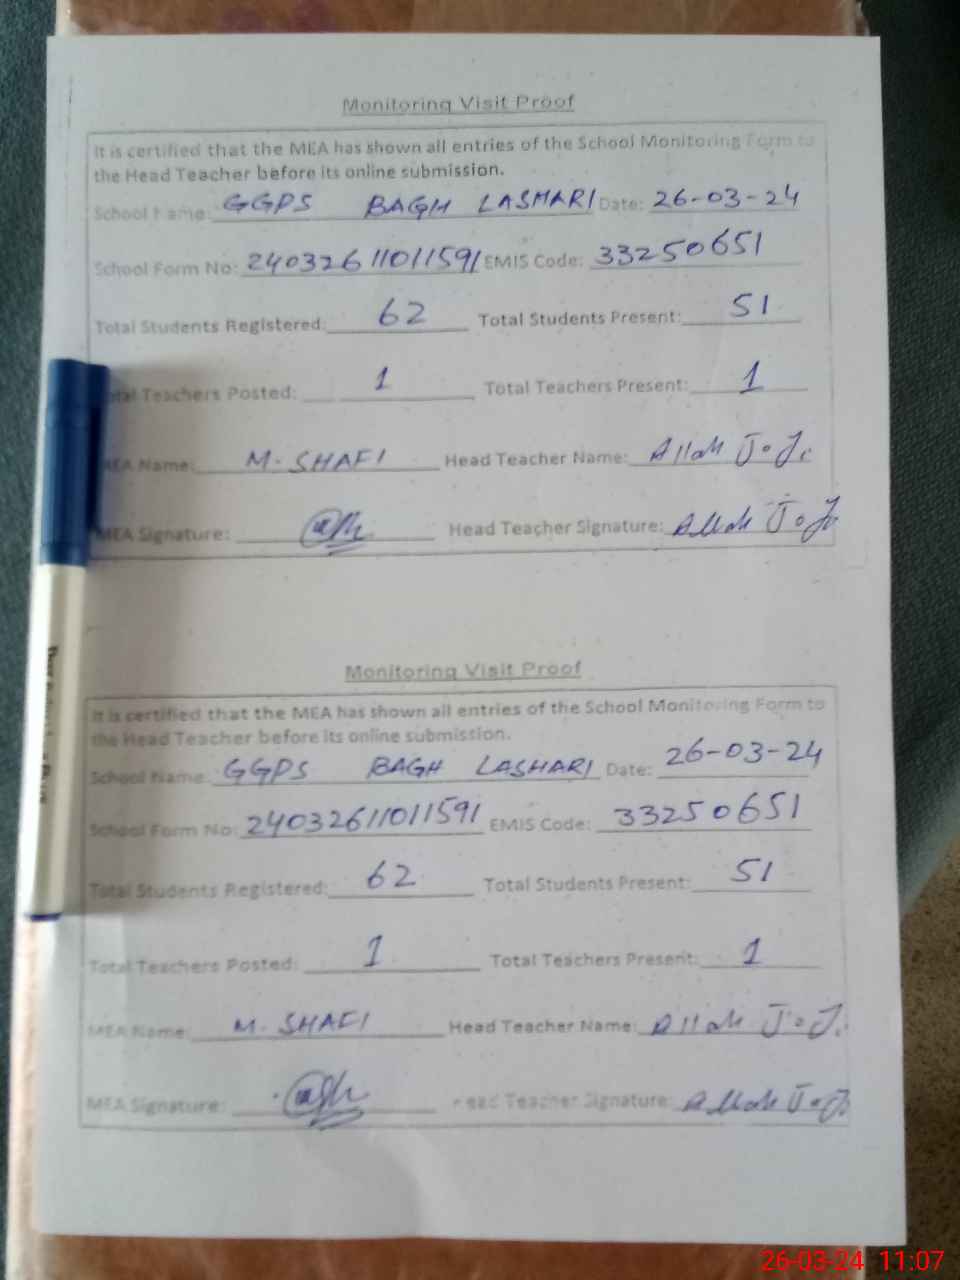 Monitoring Visit Proof
It is certified that the MEA has shown all entries of the School Monitoring Form to
the Head Teacher before its online submission.
School Name: GGPS BAGH LASHARI Date: 26-03-24
School Form No: 24032611011591 EMIS Code: 33250651
Total Students Registered: 62 Total Students Present: 51
Total Teachers Posted: 1 Total Teachers Present: 1
MEA Name: M. SHAFI Head Teacher Name: Allah
MEA Signature: Head Teacher Signature: Allah
Monitoring Visit Proof
It is certified that the MEA has shown all entries of the School Monitoring Form to
the Head Teacher before its online submission.
School Name: GGPS BAGH LASHARI Date: 26-03-24
School Form No: 24032611011591 EMIS Code: 33250651
Total Students Registered: 62 Total Students Present: 51
Total Teachers Posted: 1 Total Teachers Present: 1
MEA Name: M. SHAFI Head Teacher Name: Allah
MEA Signature: Head Teacher Signature: Allah
26-03-24 11:07